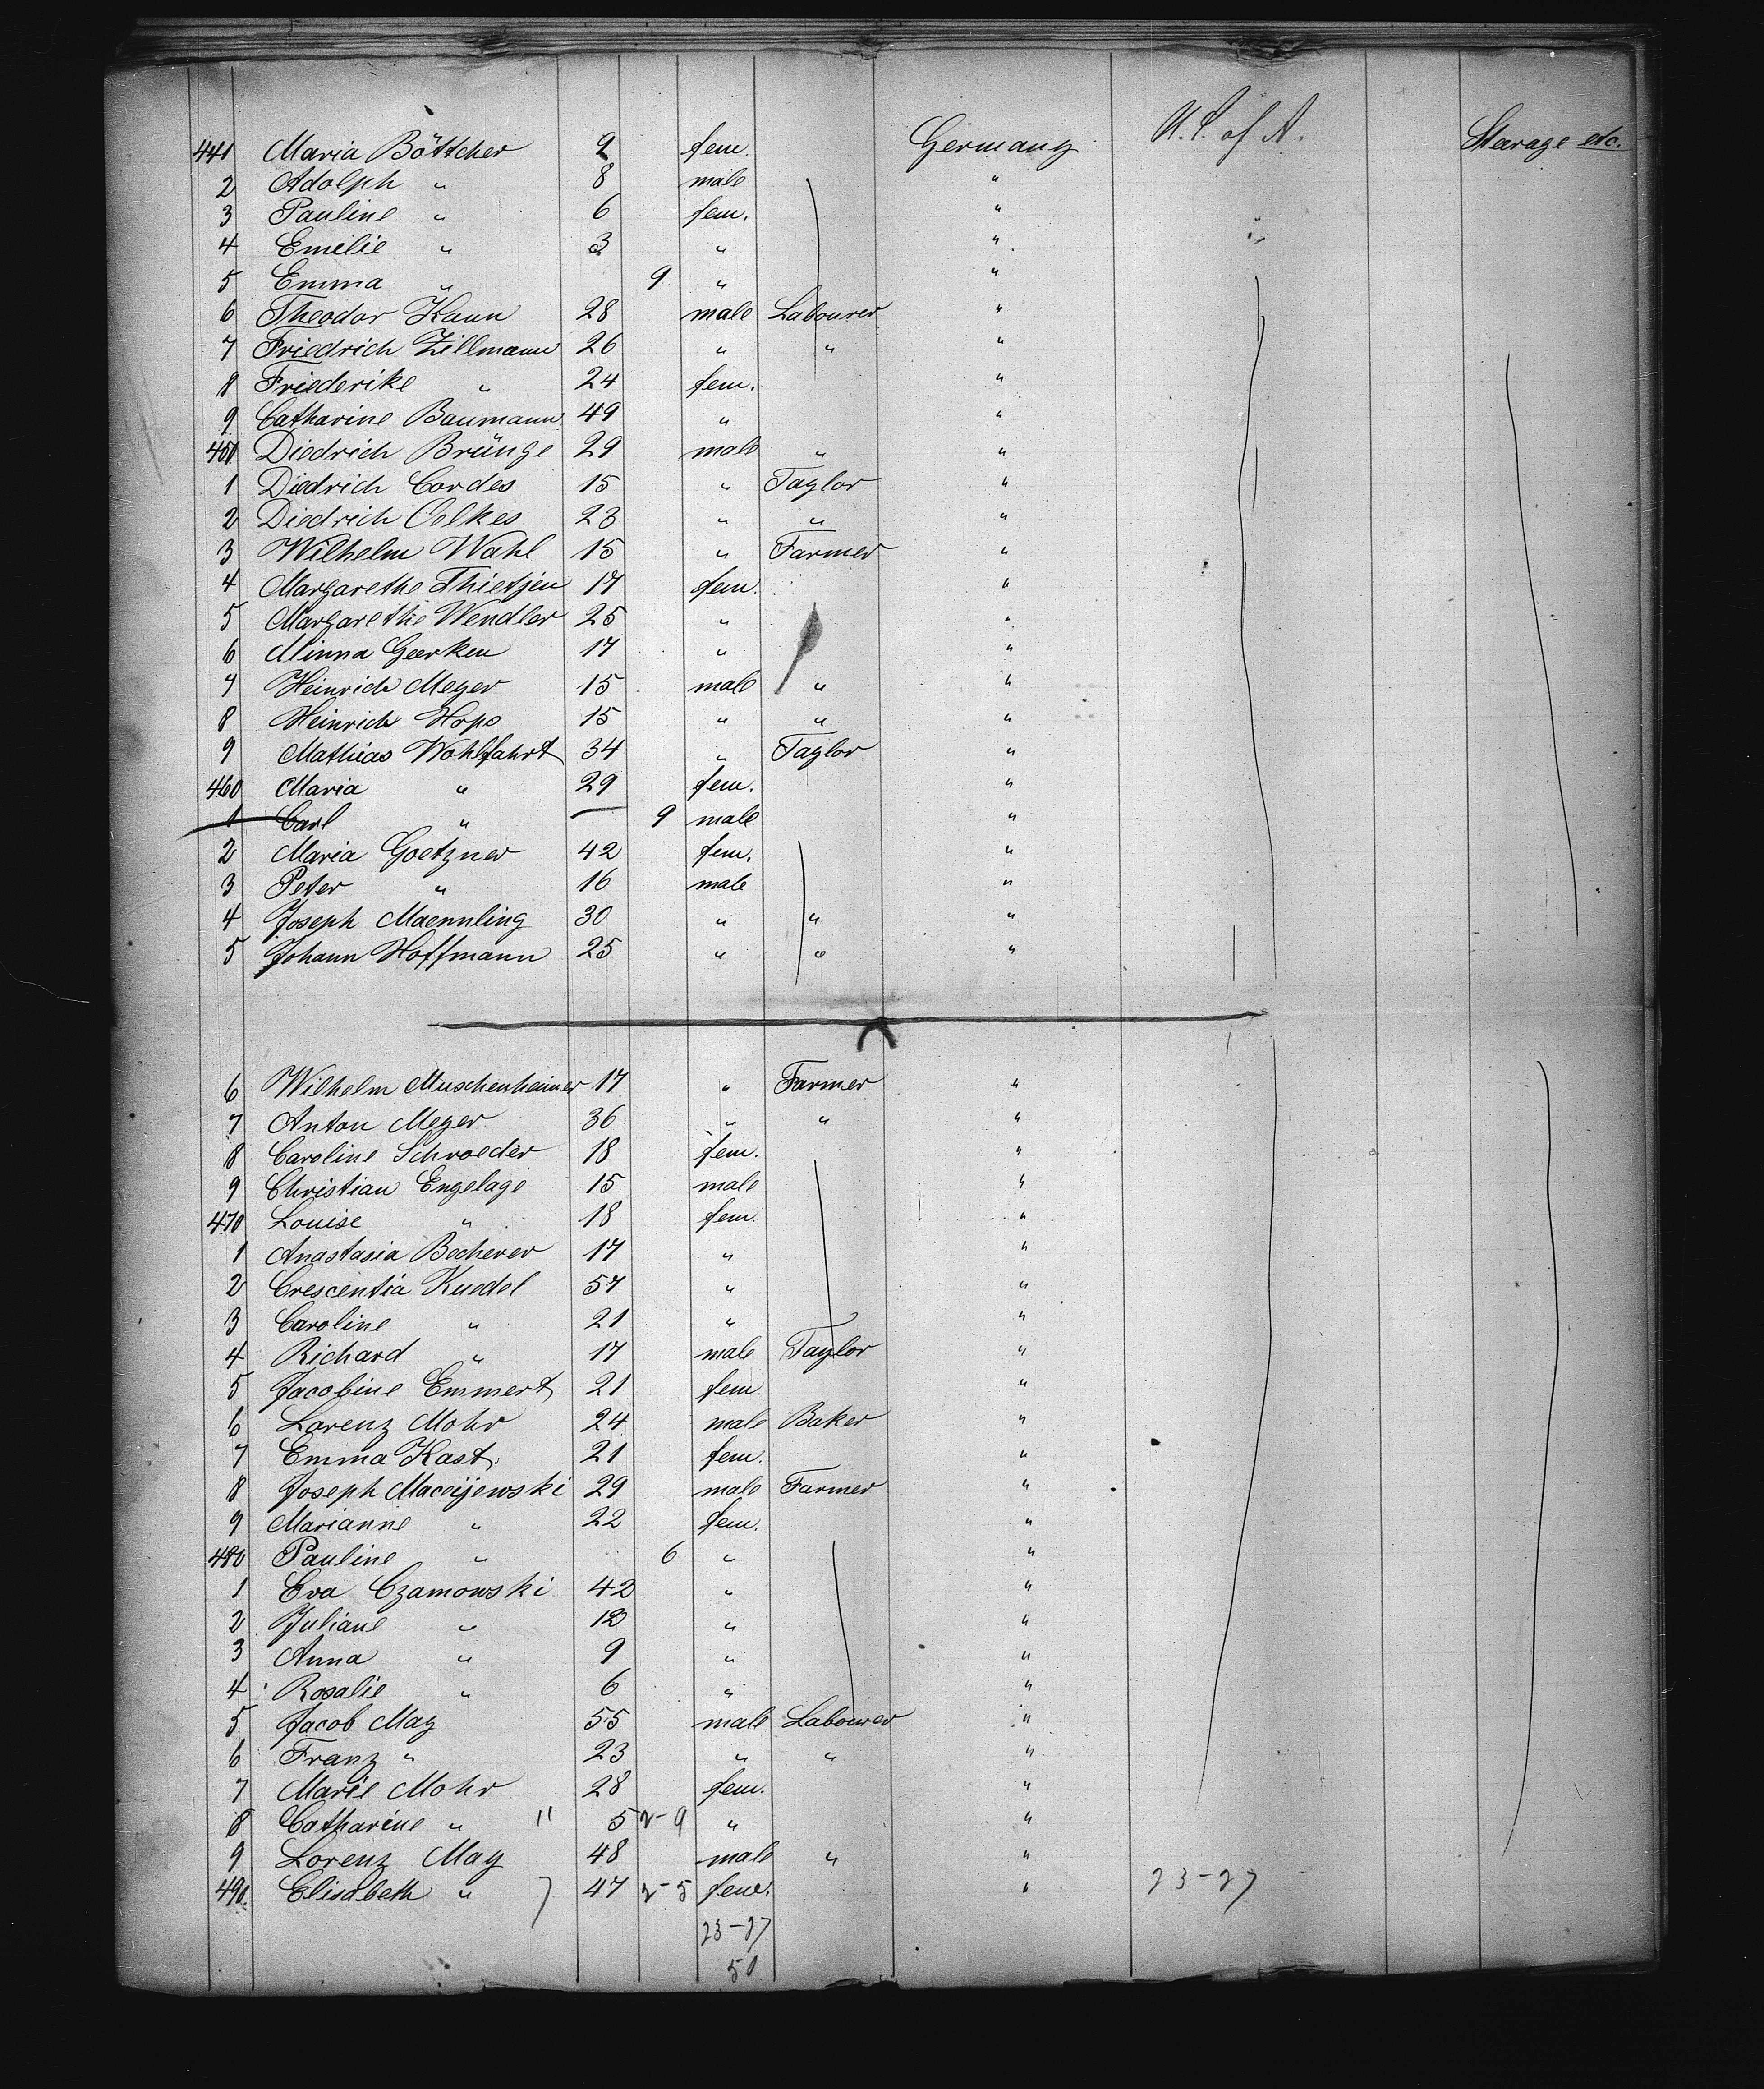 441 Maria Böttcher 9 fem. Germany U.S. of A. Stearage etc.
2 Adolph " 8 male "
3 Pauline " 6 fem. "
4 Emilie " 3 " " "
5 Emma " 9 " "
6 Theodor Kann 28 male Labourer "
7 Friedrich Zillmann 26 " " "
8 Friederike " 24 fem. "
9 Catharine Baumann 49 " "
450 Diedrich Brünge 29 male " "
1 Diedrich Cordes 15 " Taylor "
2 Diedrich Oelkes 23 " " "
3 Wilhelm Wahl 15 " Farmer "
4 Margarethe Thietjen 17 fem. "
5 Margarethe Wendler 25 " "
6 Minna Geerken 17 " "
7 Heinrich Meyer 15 male " "
8 Heinrich Hops 15 " " "
9 Mathias Wohlfahrt 34 " Taylor "
460 Maria " 29 fem. "
1 Carl " — 9 male "
2 Maria Goetzner 42 fem. "
3 Peter " 16 male "
4 Joseph Maennling 30 " " "
5 Johann Hoffmann 25 " " "
6 Wilhelm Muschenheimer 17 " Farmer "
7 Anton Meyer 36 " " "
8 Caroline Schroeder 18 fem. "
9 Christian Engelage 15 male "
470 Louise " 18 fem. "
1 Anastasia Becherer 17 " "
2 Crescentia Kuedel 57 " "
3 Caroline " 21 " "
4 Richard " 17 male Taylor "
5 Jacobine Emmert 21 fem. "
6 Lorenz Mohr 24 male Baker "
7 Emma Kast 21 fem. "
8 Joseph Maceijewski 29 male Farmer "
9 Marianne " 22 fem. "
480 Pauline " 6 " "
1 Eva Czamowski 42 " "
2 Juliane " " "
3 Anna " 9 " "
4 Rosalie " 6 " "
5 Jacob May 55 male Labourer "
6 Franz " 23 " " "
7 Marie Mohr 28 fem. "
8 Catharine " 11 5 2-9 " "
9 Lorenz May 48 male " "
490 Elisabeth " 7 47 2-5 fem. " 23-27
23-27
50